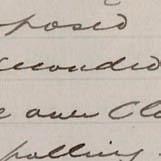 posed
seconded
e over Clo
polling